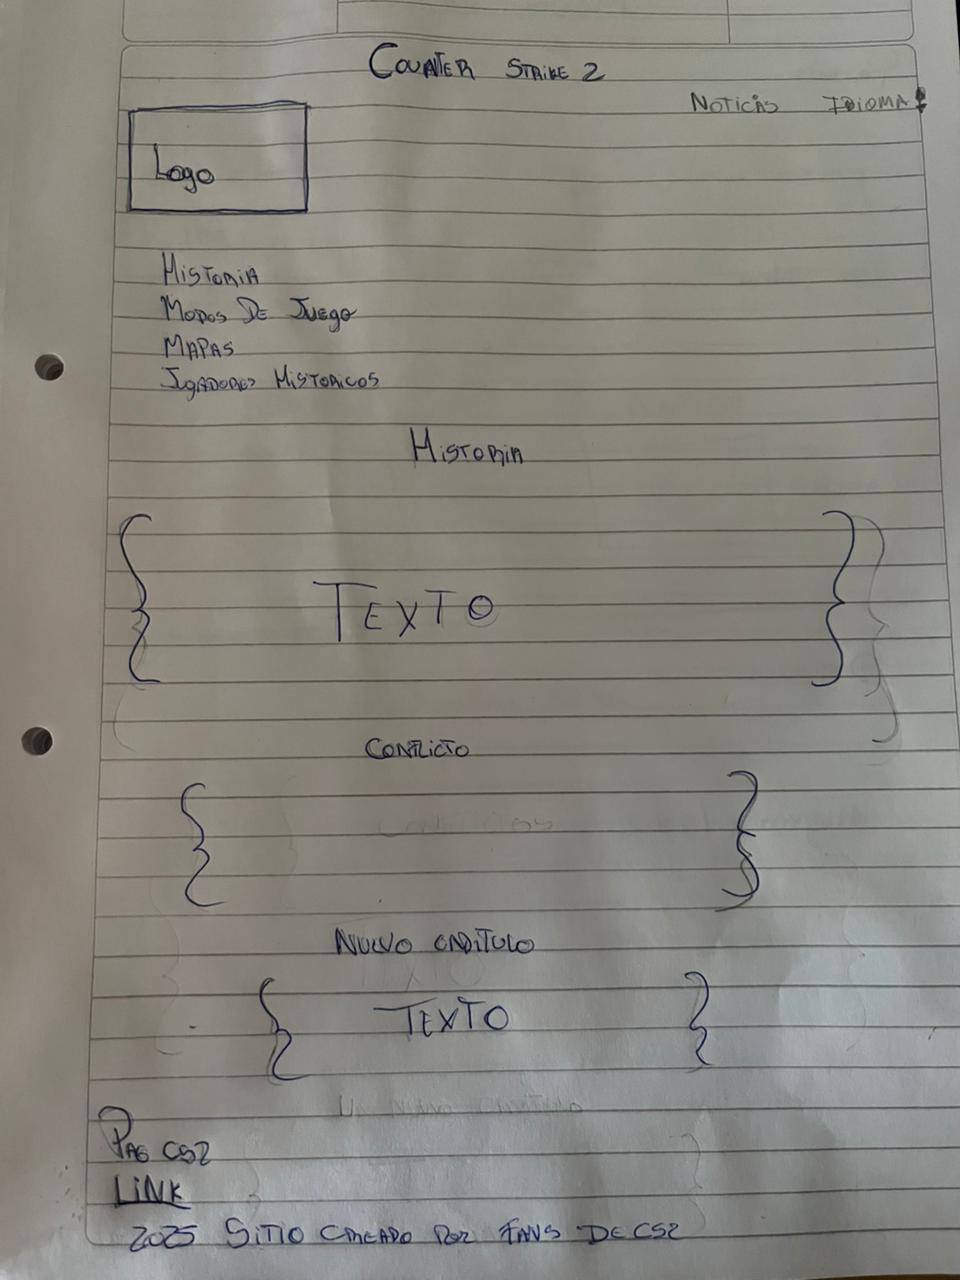 COUNTER STRIKE 2
NOTICÍAS IDIOMA
Logo
HISTORIA
MODOS DE JUEGO
MAPAS
JGADORES HISTORICOS
HISTORIA
TEXTO
CONFLICTO
NUEVO CAPITULO
TEXTO
PAG CS2
LINK
2025 SITIO CREADO POR FANS DE CS2